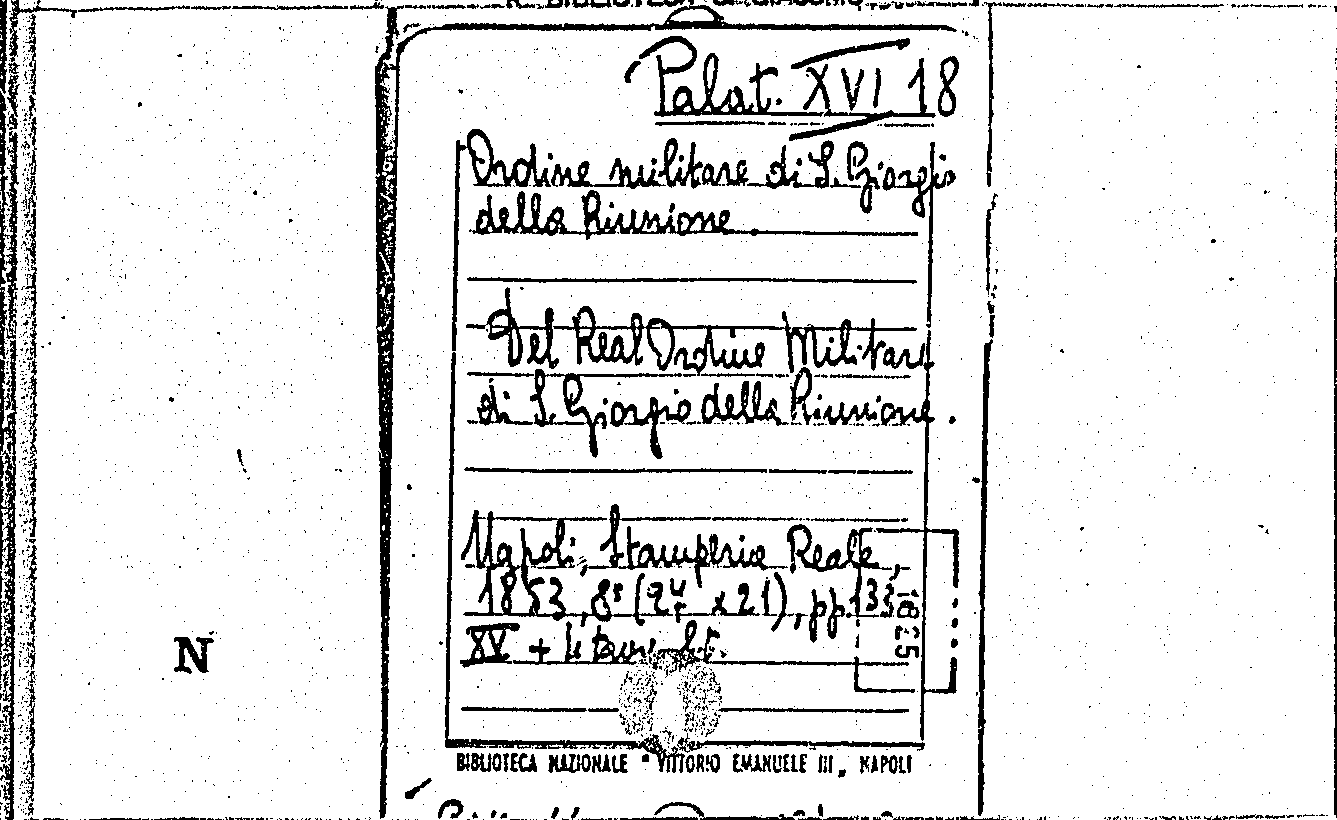 Palat. XVI 18
Ordine militare di S. Giorgio
della Riunione.
Del Real Ordine Militare
di S. Giorgio della Riunione.
Napoli, Stamperia Reale,
1853, 8° (24 x 21), pp. 133
XV + 4 tavv.
N
BIBLIOTECA NAZIONALE "VITTORIO EMANUELE III", NAPOLI